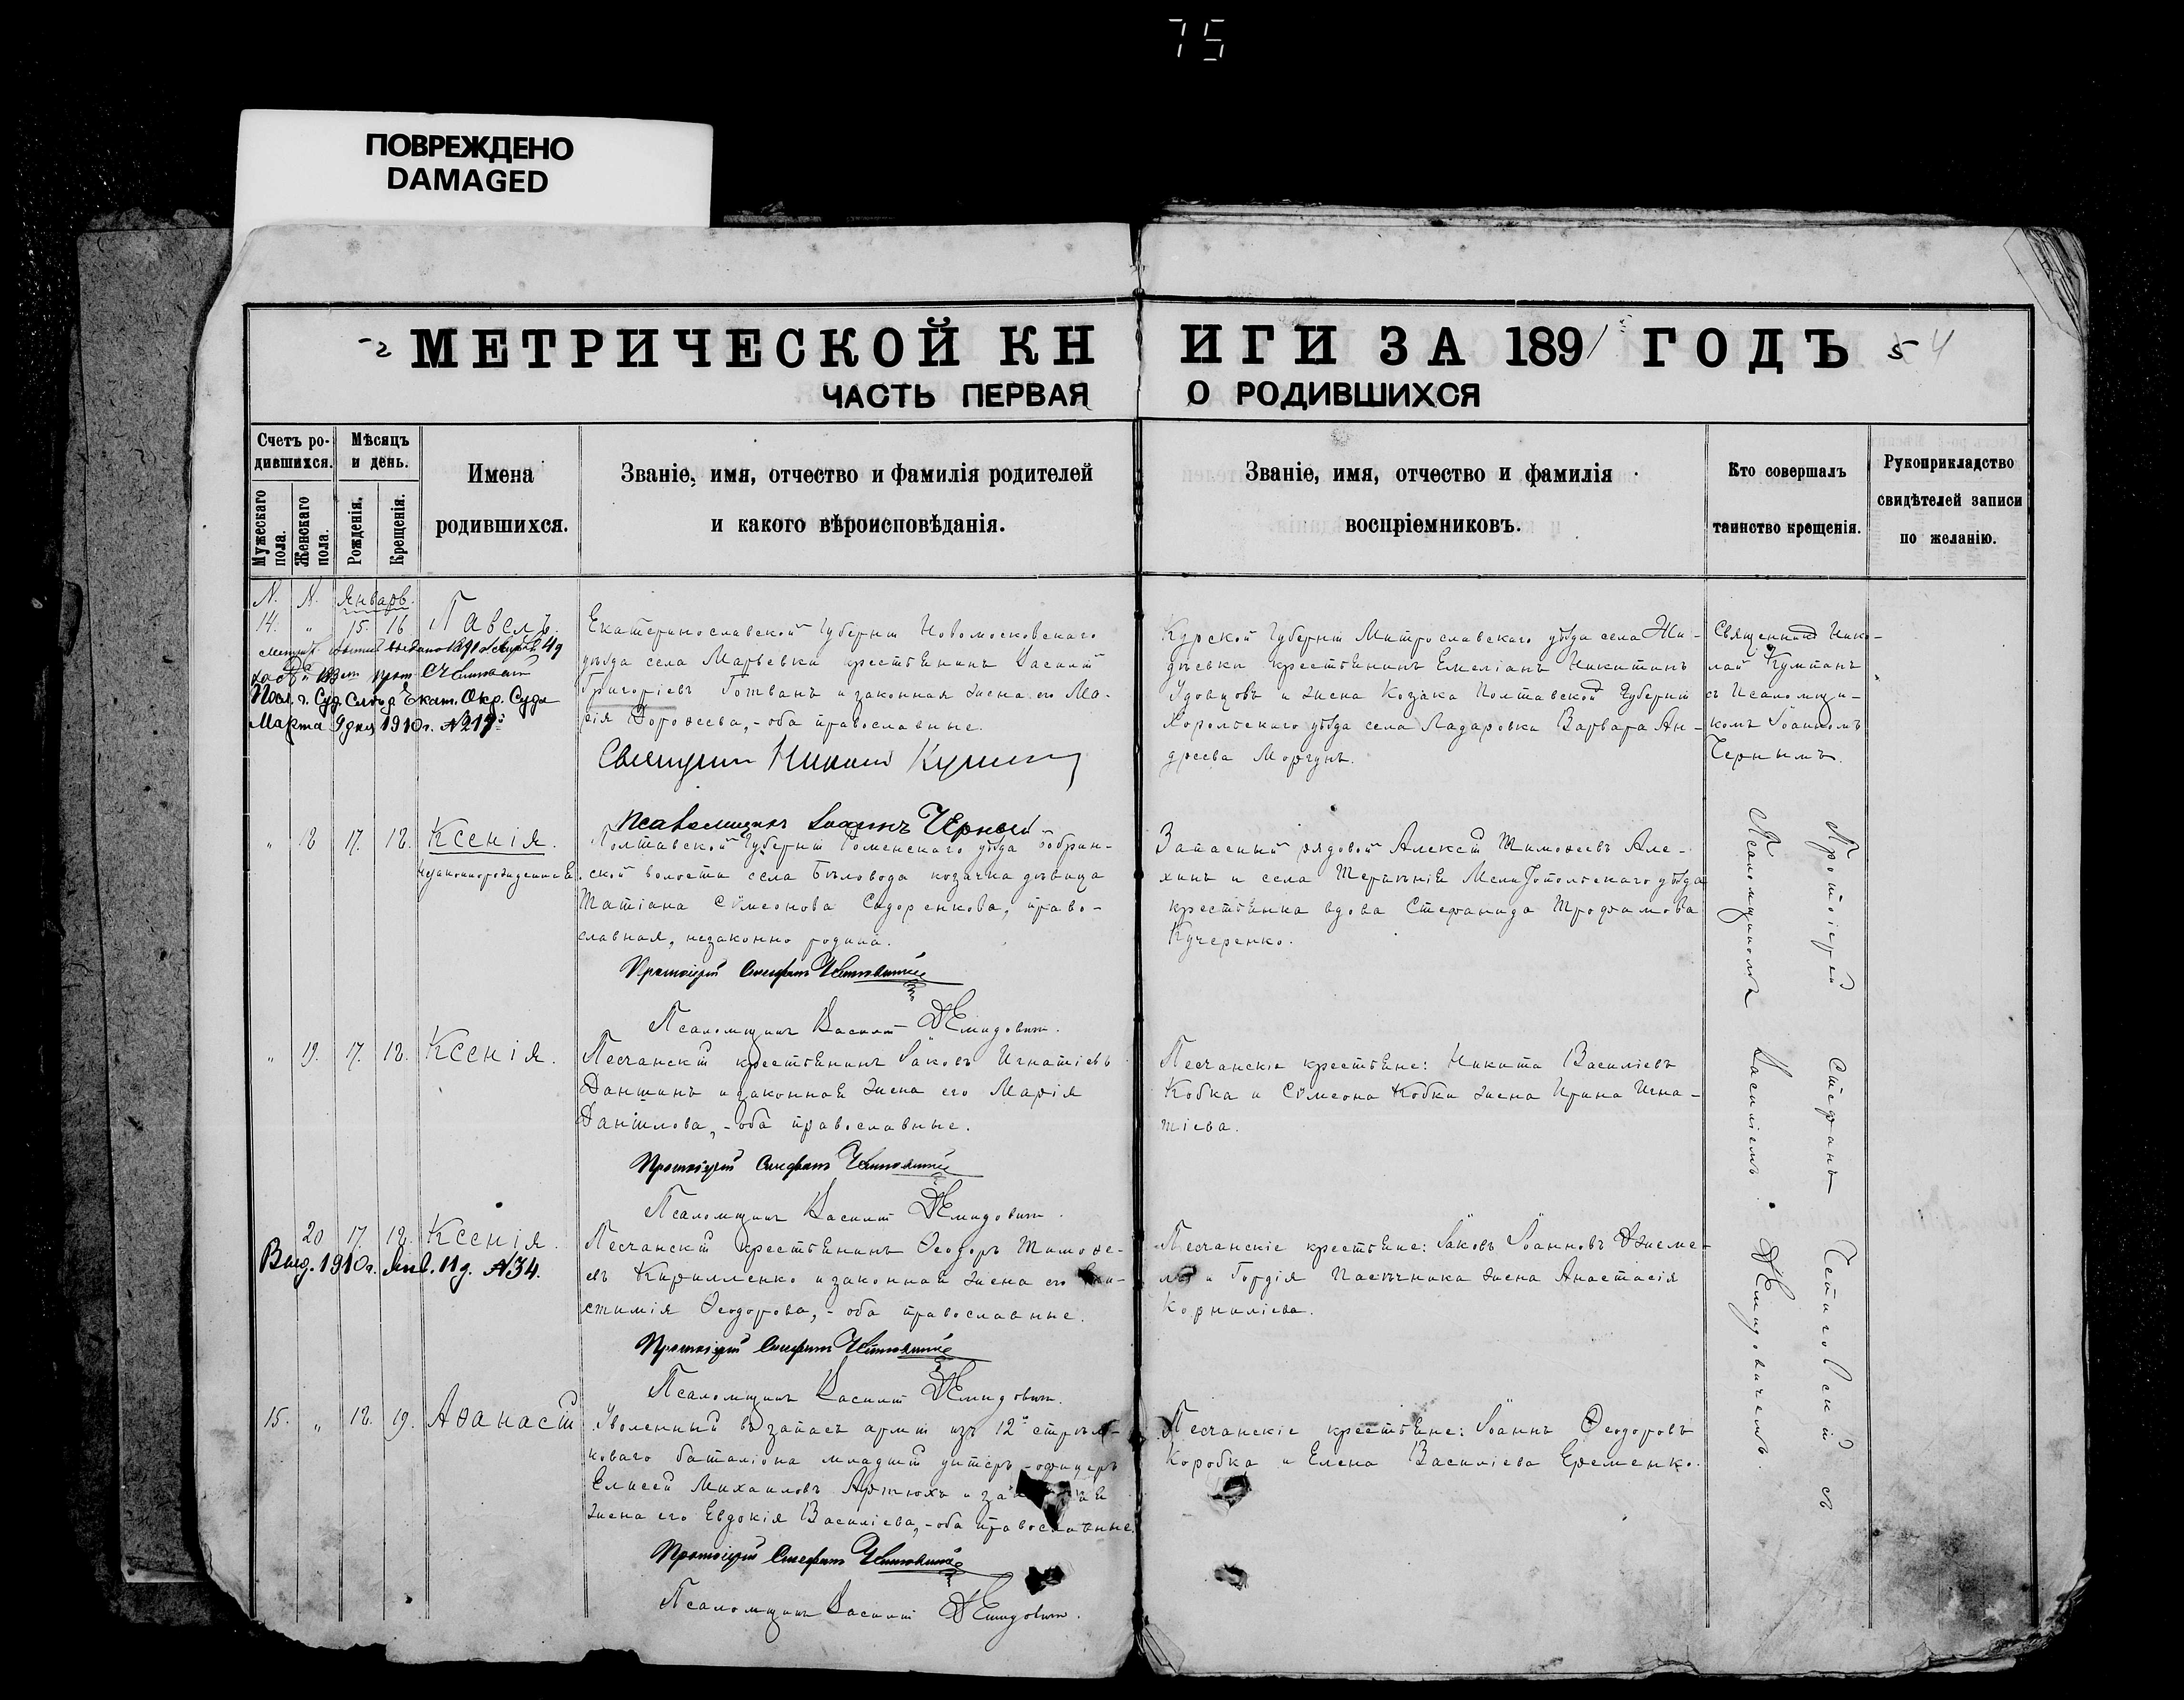 75
ПОВРЕЖДЕНО
DAMAGED
МЕТРИЧЕСКОЙ КНИГИ ЗА 1891 ГОДЪ 54
ЧАСТЬ ПЕРВАЯ О РОДИВШИХСЯ
Счетъ родившихся.
Мужескаго пола.
Женскаго пола.
Мѣсяцъ и день.
Рожденія.
Крещенія.
Имена
родившихся.
Званіе, имя, отчество и фамилія родителей
и какого вѣроисповѣданія.
Званіе, имя, отчество и фамилія
воспріемниковъ.
Кто совершалъ
таинство крещенія.
Рукоприкладство
свидѣтелей записи
по желанію.
N. N. Январь.
14. " 15. 16. Павелъ.
Екат. Окр. Суда
Марта 9 дня 1910 г. №
Екатеринославской Губерніи Новомосковскаго
уѣзда села Марьевки крестьянинъ Василій
Григоріевъ Готванъ и законная жена его Ма-
рія Дороѳеева, - оба православные.
Священникъ Николай
Псаломщикъ Іоаннъ Черный
Курской Губерніи уѣзда села
крестьянинъ Емеліанъ Никитинъ
Удовцовъ и жена Козака Полтавской Губерніи
Хорольскаго уѣзда села Варвара Ан-
дреева Моргунъ.
Священникъ Нико-
лай
съ Псаломщи-
комъ Іоанномъ
Чернымъ.
" 18 17. 18. Ксенія.
незаконнорожденная
Полтавской Губерніи Роменскаго уѣзда
волости села Бѣловода козачка дѣвица
Татіана Сѵмеонова Сидоренкова, право-
славная, незаконно родила.
Протоіерей Стефанъ
Псаломщикъ Василій Демидовичъ.
Запасный рядовой Алексій Тимоѳеевъ Але-
хинъ и села Терпѣнія Мелитопольскаго уѣзда
крестьянка вдова Стефанида Трофимова
Кучеренко.
" 19. 17. 18. Ксенія.
Песчанскій крестьянинъ Іаковъ Игнатіевъ
Даншинъ и законная жена его Марія
Даніилова, - оба православные.
Протоіерей Стефанъ
Псаломщикъ Василій Демидовичъ.
Песчанскіе крестьяне: Никита Василіевъ
Кобка и Сѵмеона Кобки жена Ирина Игна-
тіева.
20 17. 18. Ксенія.
Выд. 1910 г. Янв. 11 д. №34.
Песчанскій крестьянинъ Ѳеодоръ Тимоѳе-
евъ Кирилленко и законная жена его
Ѳеодорова, - оба православные.
Протоіерей Стефанъ
Псаломщикъ Василій Демидовичъ.
Песчанскіе крестьяне: Іаковъ Іоанновъ
и Гордія Пасѣчника жена Анастасія
Корниліева.
15. " 18. 19. Аѳанасій
Уволенный въ запасъ арміи изъ 12го стрѣл-
коваго баталіона младшій унтеръ-офицеръ
Елисей Михаиловъ Артюхъ и
жена его Евдокія Василіева, - оба православные.
Протоіерей Стефанъ
Псаломщикъ Василій Демидовичъ.
Песчанскіе крестьяне: Іоаннъ Ѳеодоровъ
Коробка и Елена Василіева Еременко.
Протоіерей Стефанъ съ
Псаломщикомъ Василіемъ Демидовичемъ.